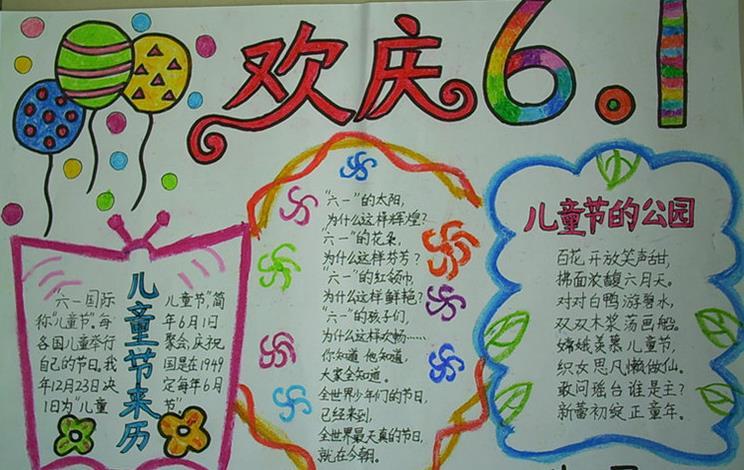 欢庆6.1
儿童节来历
“六一”国际儿童节”,简
称“儿童节”。每年6月1日
各国儿童举行聚会,庆祝
自己的节日。我国是在1949
年12月23日决定每年6月
1日为“儿童节”
“六一”的太阳,
为什么这样辉煌?
“六一”的花朵,
为什么这样芬芳?
“六一”的红领巾
为什么这样鲜艳?
“六一”的孩子们,
为什么这样欢畅……
你知道 他知道,
大家全知道。
全世界少年们的节日,
已经来到,
全世界最天真的节日,
就在今朝。
儿童节的公园
百花开放笑声甜,
拂面浓馥六月天。
对对白鸭游碧水,
双双木桨荡画船。
嫦娥羡慕儿童节,
织女思凡懒做仙。
敢问瑶台谁是主?
新蕾初绽正童年。